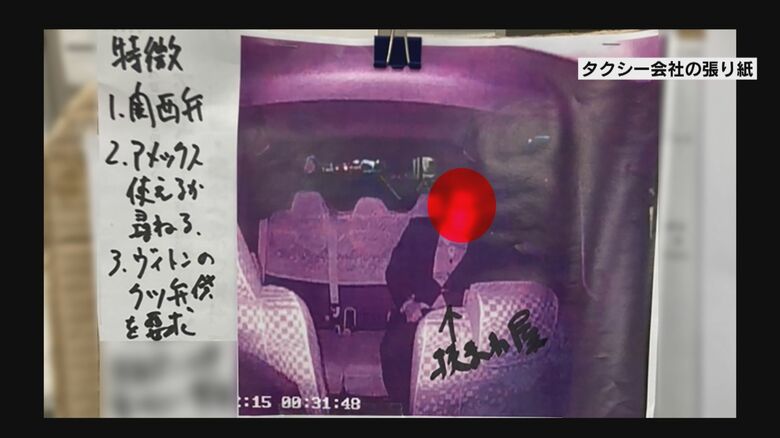 タクシー会社の張り紙
特徴
1. 関西弁
2. アメックス
使えるか
尋ねる.
3. ヴィトンの
クツ弁償
を要求
↑
:15 00:31:48